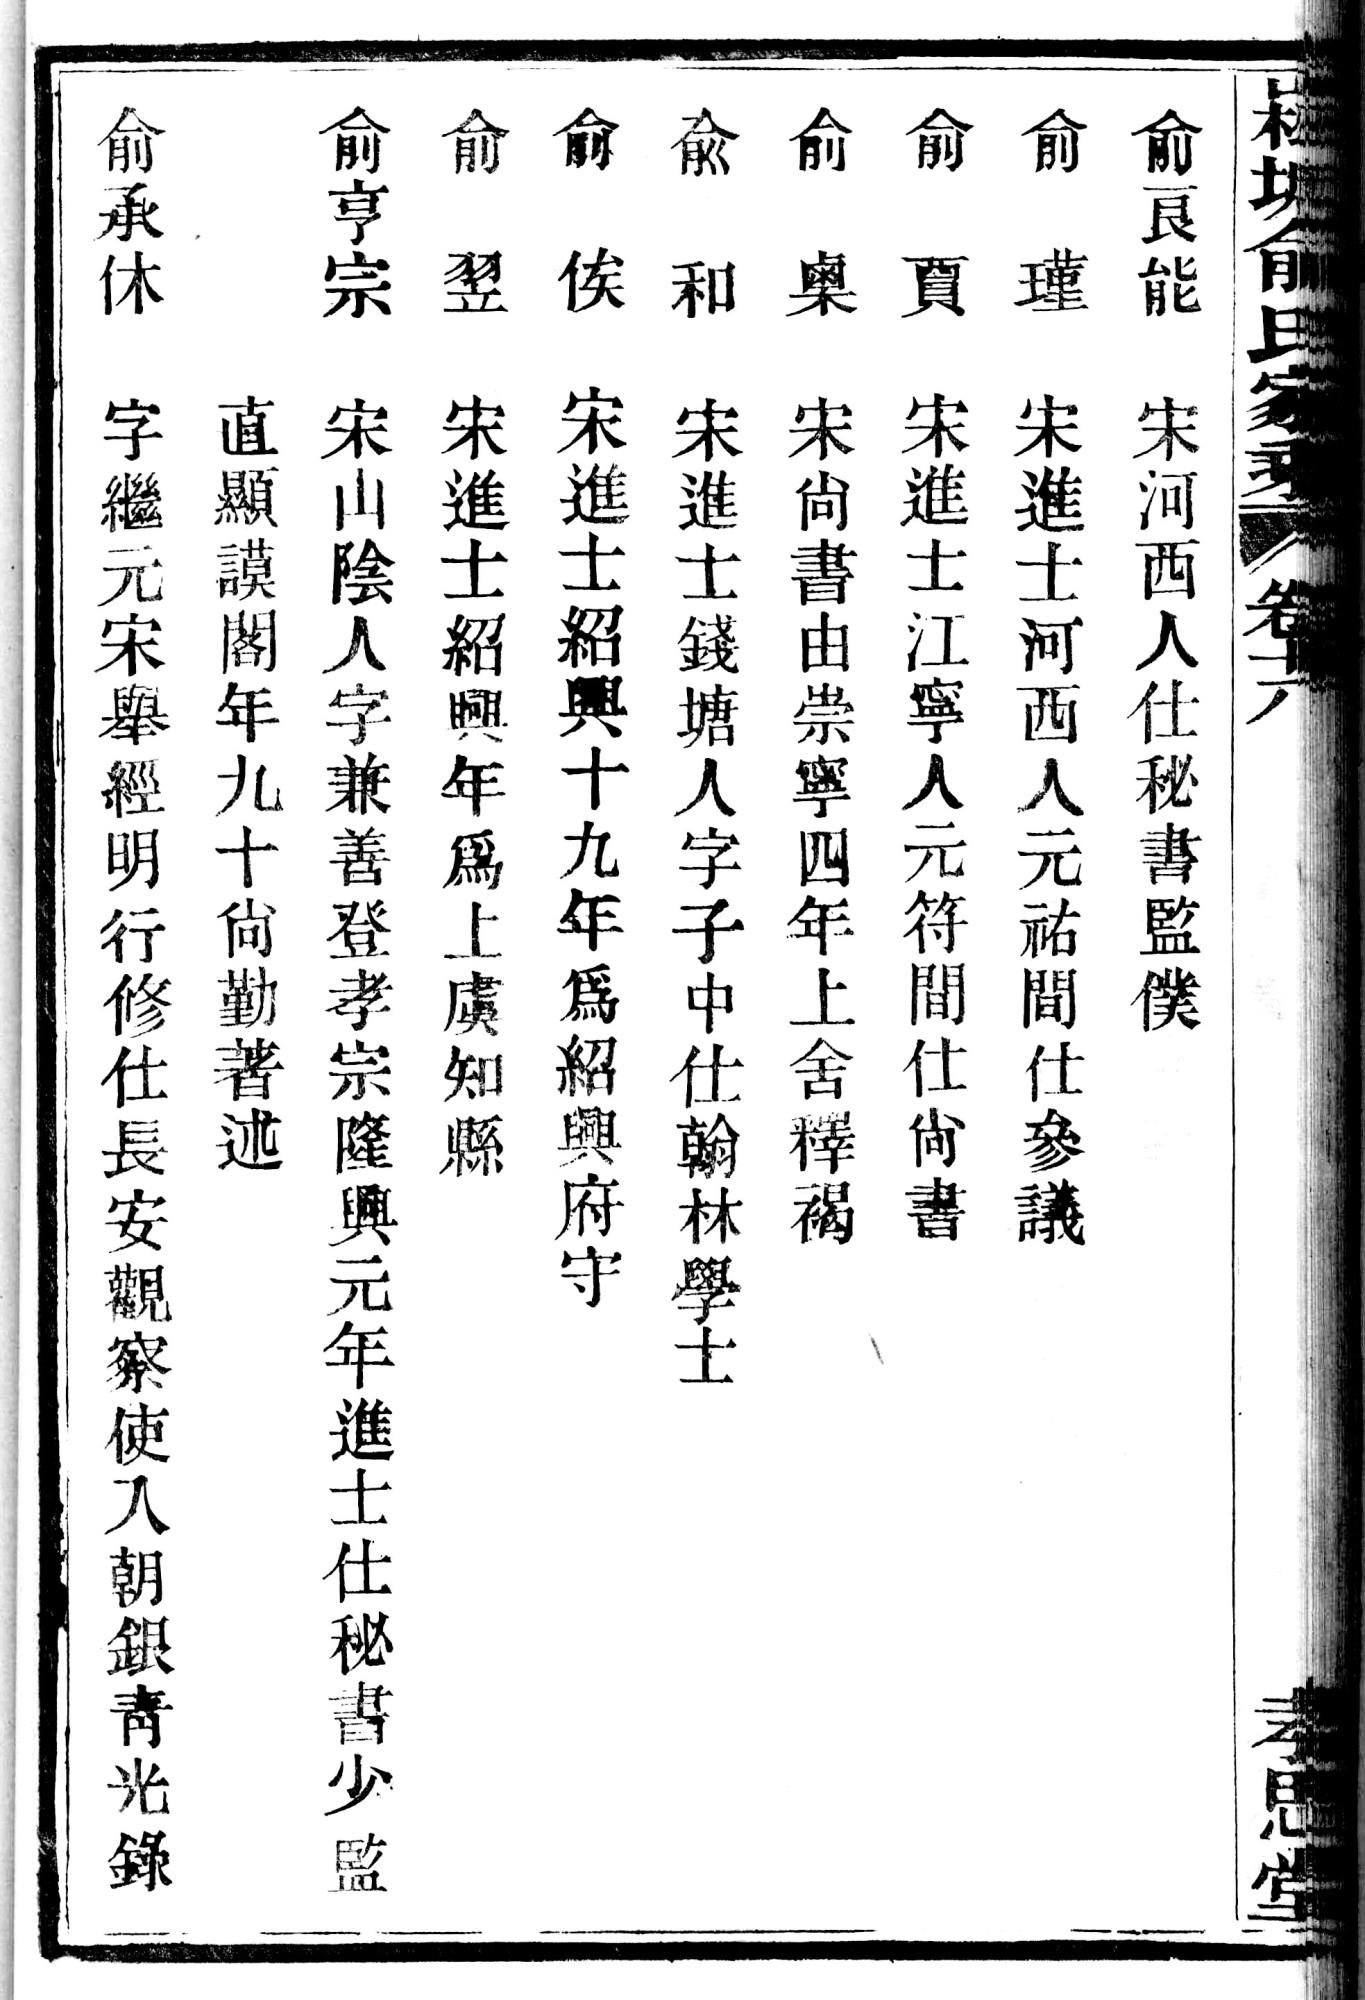 俞良能　宋河西人仕秘書監僕
俞　瑾　宋進士河西人元祐間仕參議
俞　　　宋進士江寧人元符間仕尙書
俞　㮚　宋尙書由崇寧四年上舍釋褐
兪　和　宋進士錢塘人字子中仕翰林學士
俞　俟　宋進士紹興十九年爲紹興府守
俞　翌　宋進士紹興年爲上虞知縣
俞亨宗　宋山陰人字兼善登孝宗隆興元年進士仕秘書少監
直顯謨閣年九十尙勤著述
俞承休　字繼元宋舉經明行修仕長安觀察使入朝銀青光錄
俞氏家乘　卷十六　孝思堂